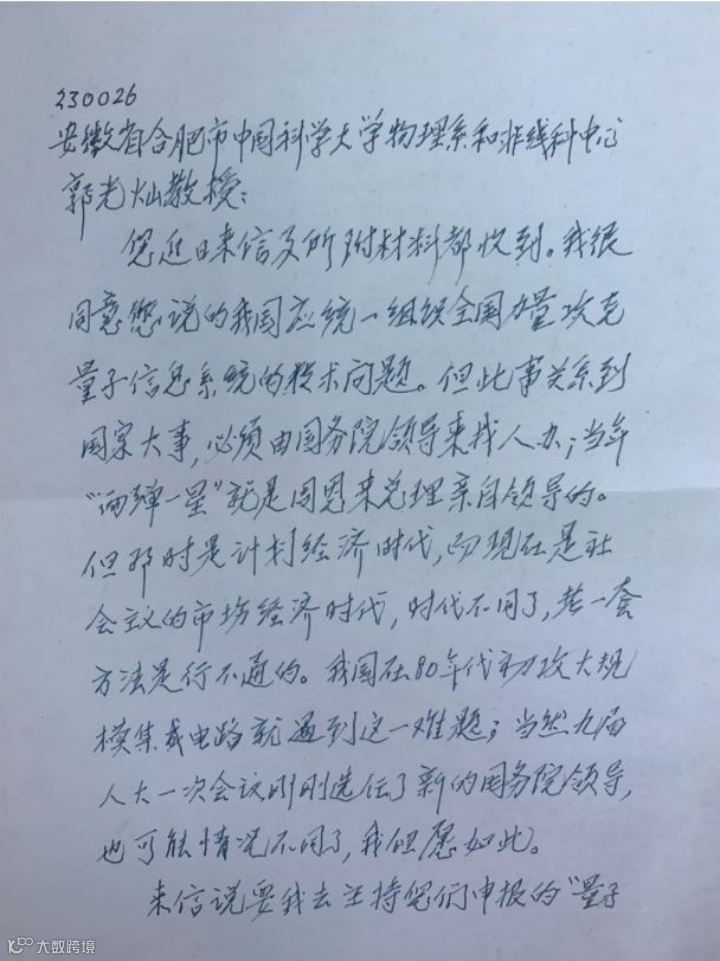 230026
安徽省合肥市中国科学大学物理系和非线科中心
郭光灿教授：
您近日来信及所附材料都收到。我很
同意您说的我国应统一组织全国力量攻克
量子信息系统的技术问题。但此事关系到
国家大事，必须由国务院领导来找人办；当年
“两弹一星”就是周恩来总理亲自领导的。
但那时是计划经济时代，而现在是社
会主义的市场经济时代，时代不同了，老一套
方法是行不通的。我国在80年代初攻大规
模集成电路就遇到这一难题；当然九届
人大一次会议刚刚选任了新的国务院领导，
也可能情况不同了，我但愿如此。
来信说要我去主持您们申报的“量子
大数跨境